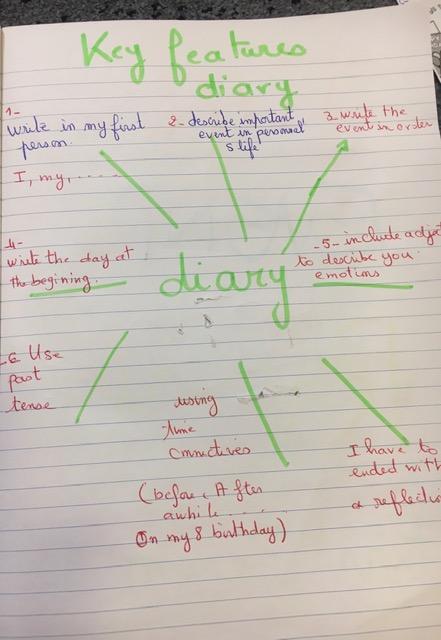 Key features
diary
1-
Write in my first
person.
I, my, ......
2- describe important
event in personnal'
s life
3- write the
event in order
4-
write the day at
the begining.
diary
-5- include adje
to describe you
emotions
-6 Use
past
tense
using
time
connectives
(before, After
awhile ......
On my 8 birthday)
I have to
ended with
a reflectiv